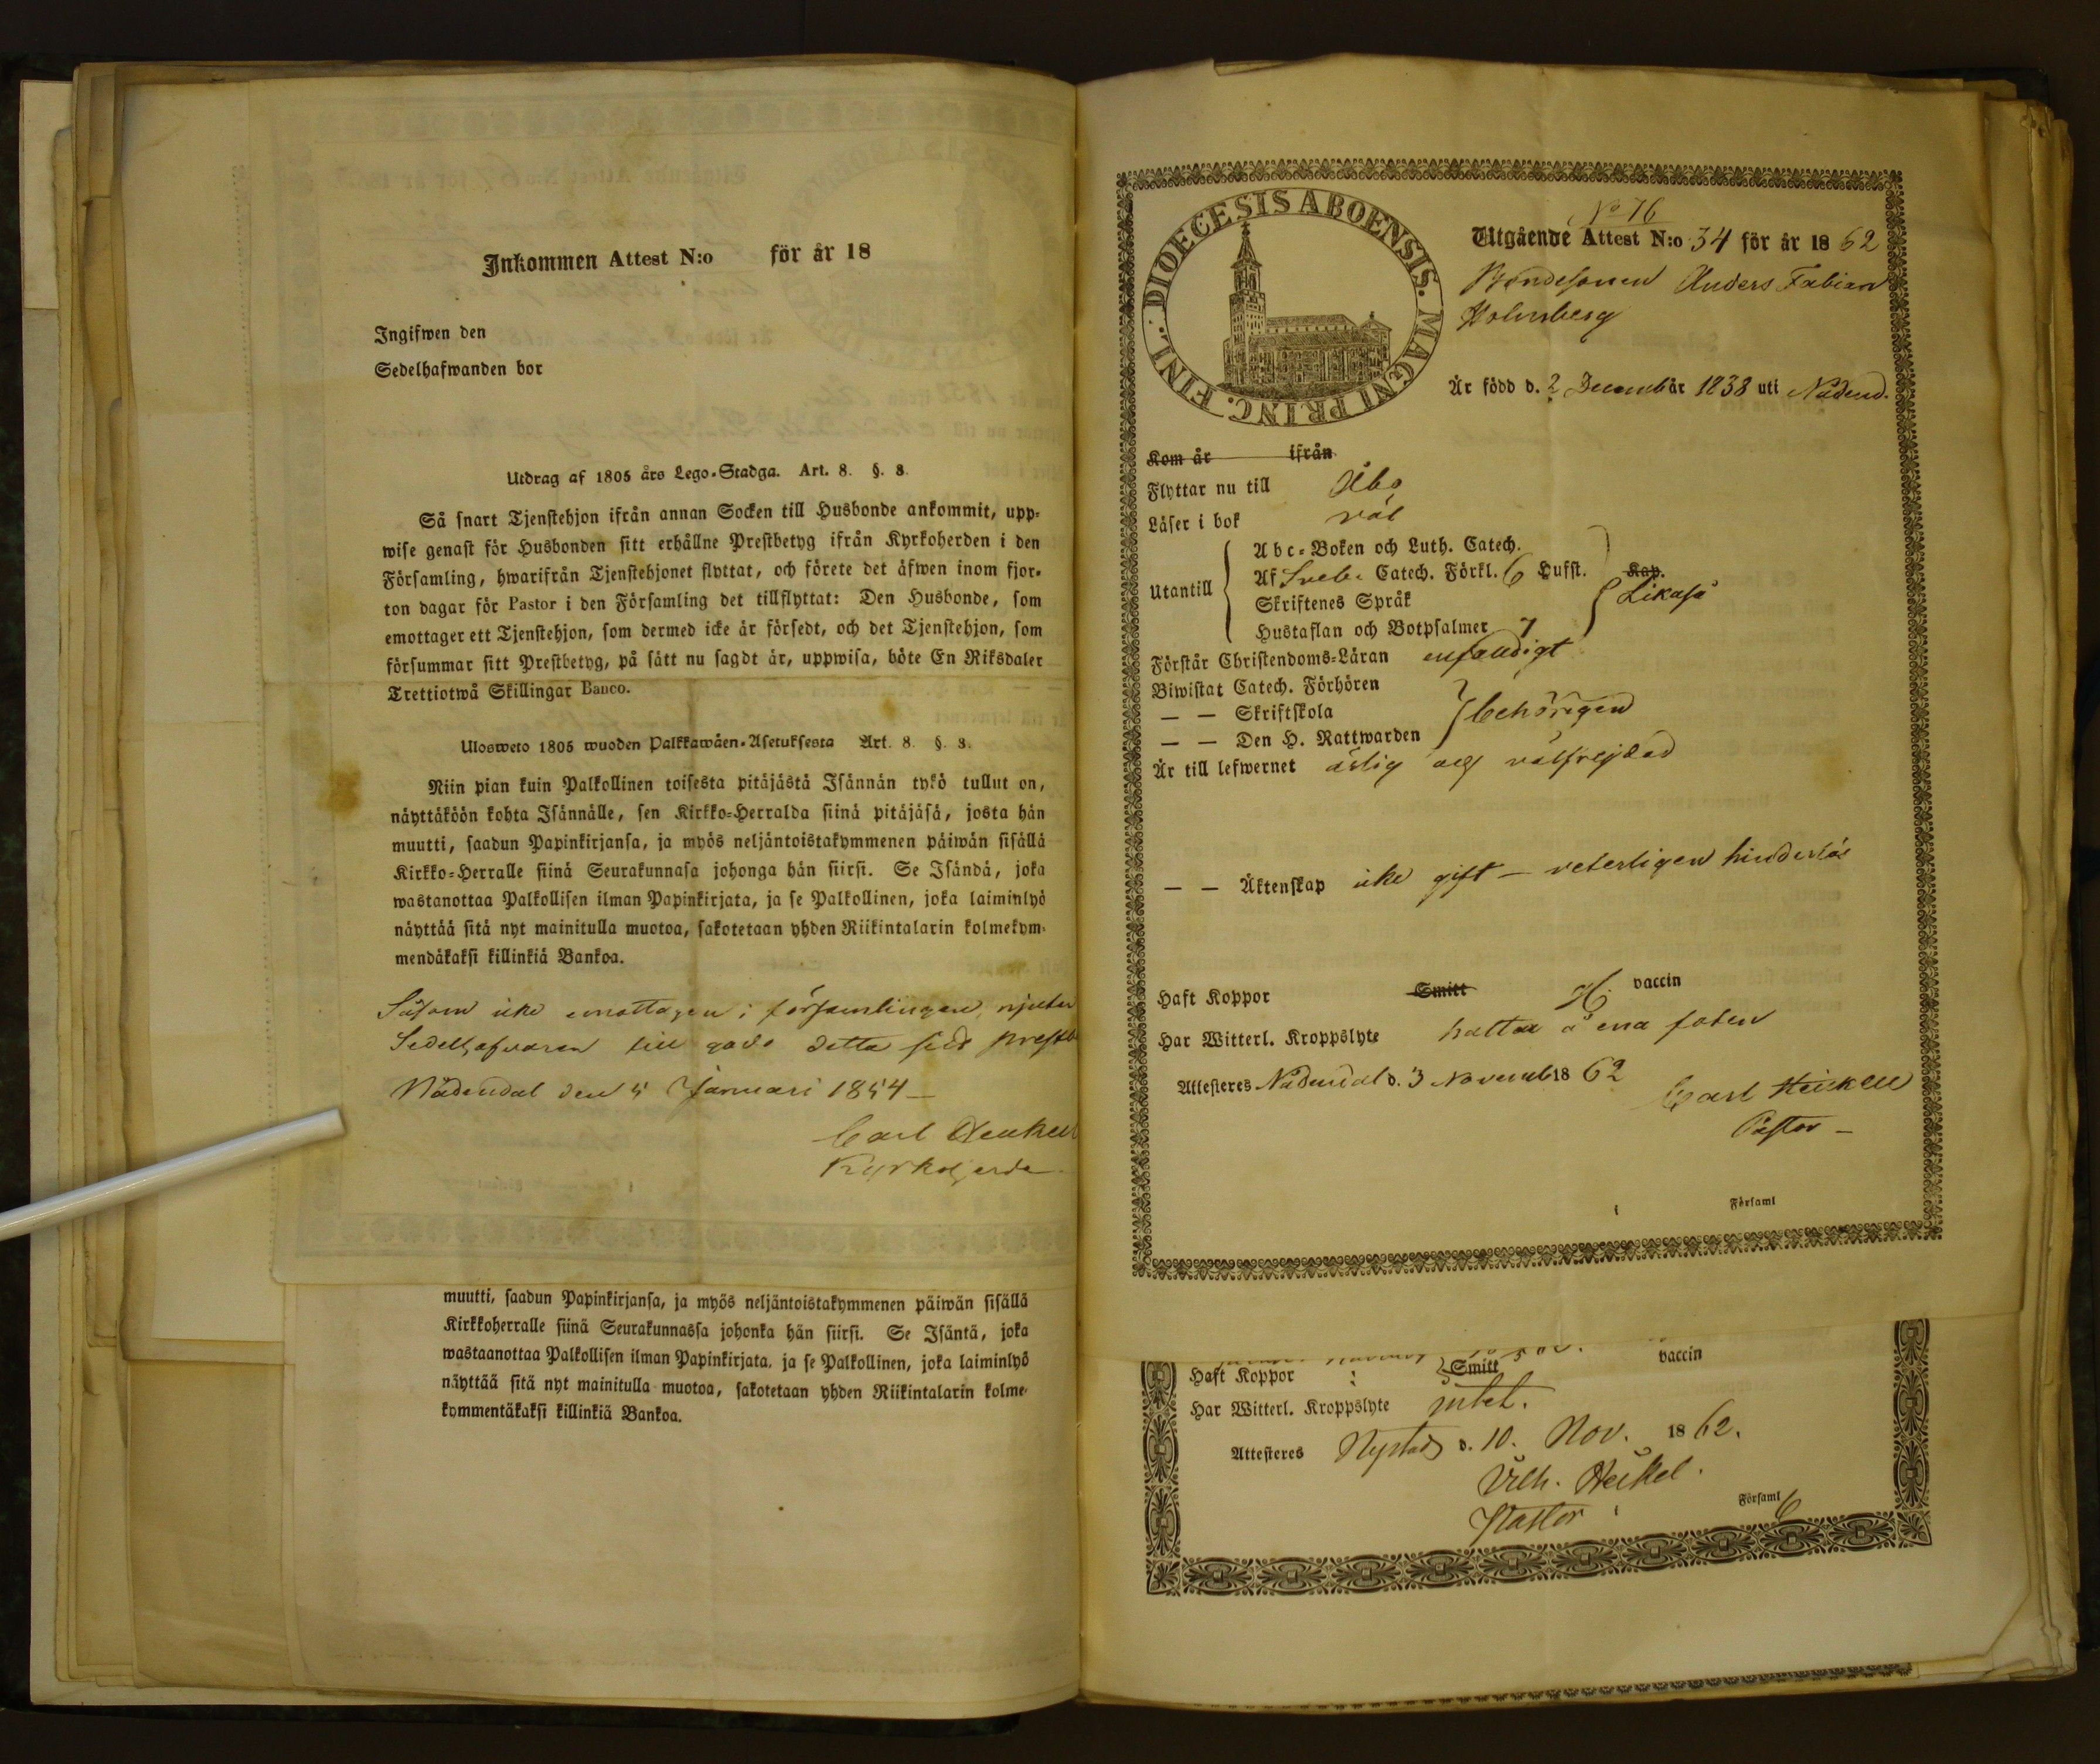 Inkommen Attest N:o för år 18
Ingifwen den
Sedelhafwanden bor
Utdrag af 1805 års Lego-Stadga. Art. 8. §. 3.
Så snart Tjenstehjon ifrån annan Socken till Husbonde ankommit, upp-
wise genast för Husbonden sitt erhållne Prestbetyg ifrån Kyrkoherden i den
Församling, hwarifrån Tjenstehjonet flyttat, och förete det äfwen inom fjor-
ton dagar för Pastor i den Församling det tillflyttat: Den Husbonde, som
emottager ett Tjenstehjon, som dermed icke är försedt, och det Tjenstehjon, som
försummar sitt Prestbetyg, på sätt nu sagdt är, uppwisa, böte En Riksdaler
Trettiotwå Skillingar Banco.
Ulosweto 1805 wuoden Palkkawäen-Asetuksesta Art. 8. §. 3.
Niin pian kuin Palkollinen toisesta pitäjästä Isännän tykö tullut on,
näyttäköön kohta Isännälle, sen Kirkko-Herralda siinä pitäjäsä, josta hän
muutti, saadun Papinkirjansa, ja myös neljäntoistakymmenen päiwän sisällä
Kirkko-Herralle siinä Seurakunnasa johonga hän siirsi. Se Isändä, joka
wastanottaa Palkollisen ilman Papinkirjata, ja se Palkollinen, joka laiminlyö
näyttää sitä nyt mainitulla muotoa, sakotetaan yhden Riikintalarin kolmekym-
mendäkaksi killinkiä Bankoa.
Såsom icke emottagen i församlingen, njuter
Sedelhafvaren till godo detta sidst
Nådendal den 5 Januari 1854
Carl Heikell
Kyrkoherde
muutti, saadun Papinkirjansa, ja myös neljäntoistakymmenen päiwän sisällä
Kirkkoherralle siinä Seurakunnassa johonka hän siirsi. Se Isäntä, joka
wastaanottaa Palkollisen ilman Papinkirjata, ja se Palkollinen, joka laiminlyö
näyttää sitä nyt mainitulla muotoa, sakotetaan yhden Riikintalarin kolme-
kymmentäkaksi killinkiä Bankoa.
DIOECESIS ABOENSIS. MAGNI PRINC. FINL.
No 76
Utgående Attest N:o 34 för år 1862
Bondesonen Anders Fabian
Holmberg
Är född d. 2 Decemb år 1838 uti Nådend.
Kom år ifrån
Flyttar nu till Åbo
Läser i bok väl
Utantill
Abc-Boken och Luth. Catech.
Af Sveb. Catech. Förkl. 6 Hufst. Kap.
Skriftenes Språk
Likaså
Hustaflan och Botpsalmer 7
Förstår Christendoms-Läran enfaldigt
Biwistat Catech. Förhören
— — Skriftskola
behörigen
— — Den H. Nattwarden
Är till lefwernet ärlig och välfrejdad
— — Äktenskap icke gift — veterligen hinderlös
Haft Koppor Smitt H. vaccin
Har Witterl. Kroppslyte haltar å ena foten
Attesteres Nådendal d. 3 Novemb 1862
Carl Heikell
Pastor —
i Församl
Haft Koppor Smitt vaccin
Har Witterl. Kroppslyte intet.
Attesteres Nystad d. 10. Nov. 1862.
Vilh. Heikel.
Pastor i Församl